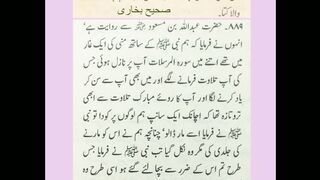 والا کتا۔ صحیح بخاری
۸۸۹۔ حضرت عبداللہ بن مسعود ﷜ سے روایت ہے'
انہوں نے فرمایا کہ ہم نبی ﷺ کے ساتھ منی کی ایک غار
میں تھے اتنے میں سورہ المرسلات آپ پر نازل ہوئی جس
کی آپ تلاوت فرمانے لگے اور میں آپ سے سن کر
یاد کرنے لگا اور آپ کا روئے مبارک تلاوت سے ابھی
تروتازہ تھا کہ اچانک ایک سانپ ہم لوگوں پر کودا تو نبی
ﷺ نے فرمایا اسے مار ڈالو' چنانچہ ہم نے اس کو مارنے
کی جلدی کی مگر وہ نکل گیا تب نبی ﷺ نے فرمایا جس
طرح تم اس کے ضرر سے بچا لئے گئے ہو اسی طرح وہ